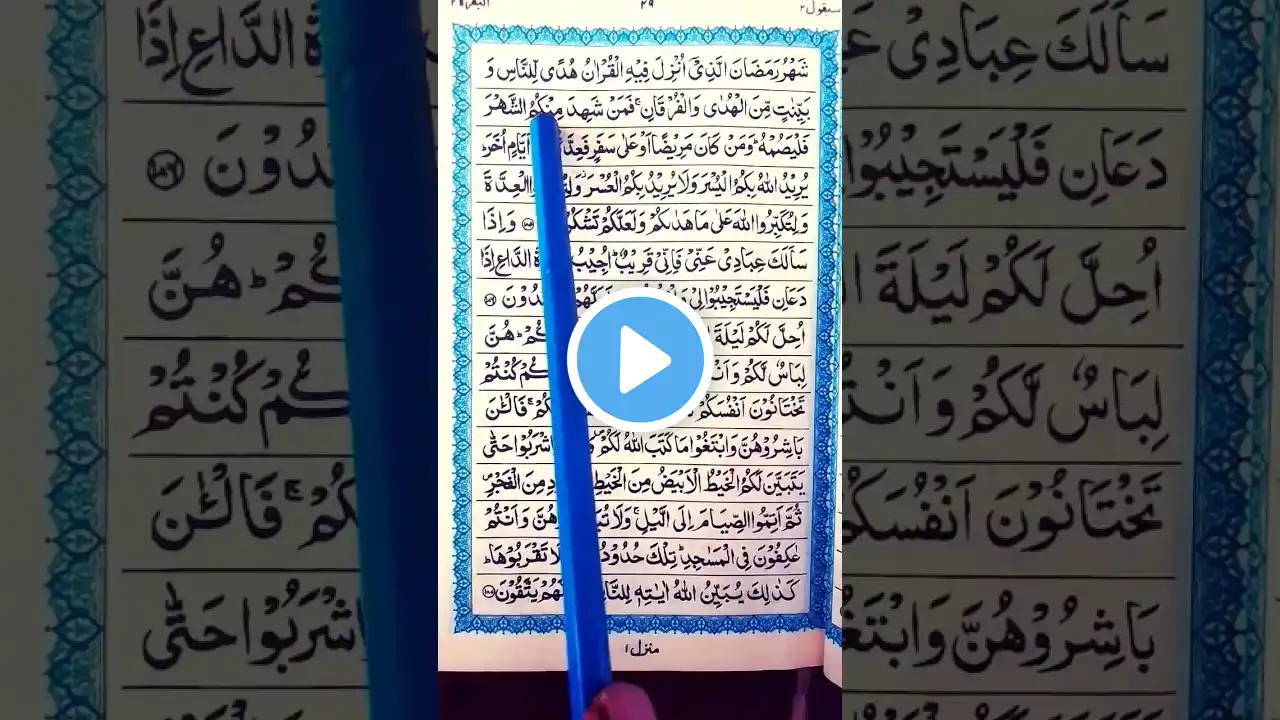 سيقول ٢
٢٩
البقرة ٢
شَهْرُ رَمَضَانَ الَّذِىْٓ اُنْزِلَ فِيْهِ الْقُرْاٰنُ هُدًى لِّلنَّاسِ وَ
بَيِّنٰتٍ مِّنَ الْهُدٰى وَالْفُرْقَانِ ۚ فَمَنْ شَهِدَ مِنْكُمُ الشَّهْرَ
فَلْيَصُمْهُ ؕ وَمَنْ كَانَ مَرِيْضًا اَوْ عَلٰى سَفَرٍ فَعِدَّ اَيَّامٍ اُخَرَ ؕ
يُرِيْدُ اللّٰهُ بِكُمُ الْيُسْرَ وَلَا يُرِيْدُ بِكُمُ الْعُسْرَ ؗ وَلِتُ وا الْعِدَّةَ
وَلِتُكَبِّرُوا اللّٰهَ عَلٰى مَا هَدٰىكُمْ وَلَعَلَّكُمْ تَشْكُرُ ۱۸۵ وَاِذَا
سَاَلَكَ عِبَادِىْ عَنِّىْ فَاِنِّىْ قَرِيْبٌ ؕ اُجِيْبُ ةَ الدَّاعِ اِذَا
دَعَانِ فَلْيَسْتَجِيْبُوْا لِىْ لَّهُمْ دُوْنَ ۱۸۶
اُحِلَّ لَكُمْ لَيْلَةَ كُمْ ؕ هُنَّ
لِبَاسٌ لَّكُمْ وَاَنْتُ كُمْ كُنْتُمْ
تَخْتَانُوْنَ اَنْفُسَكُمْ كُمْ ۚ فَالْـٰٔنَ
بَاشِرُوْهُنَّ وَابْتَغُوْا مَا كَتَبَ اللّٰهُ لَكُمْ ۪ وَ اشْرَبُوْا حَتّٰى
يَتَبَيَّنَ لَكُمُ الْخَيْطُ الْاَبْيَضُ مِنَ الْخَيْطِ دِ مِنَ الْفَجْرِ ۪
ثُمَّ اَتِمُّوا الصِّيَامَ اِلَى الَّيْلِ ۚ وَلَا تُبَ هُنَّ وَاَنْتُمْ
عٰكِفُوْنَ فِى الْمَسٰجِدِ ؕ تِلْكَ حُدُوْدُ لَا تَقْرَبُوْهَا ؕ
كَذٰلِكَ يُبَيِّنُ اللّٰهُ اٰيٰتِهٖ لِلنَّا لَّهُمْ يَتَّقُوْنَ ۱۸۷
منزل ۱